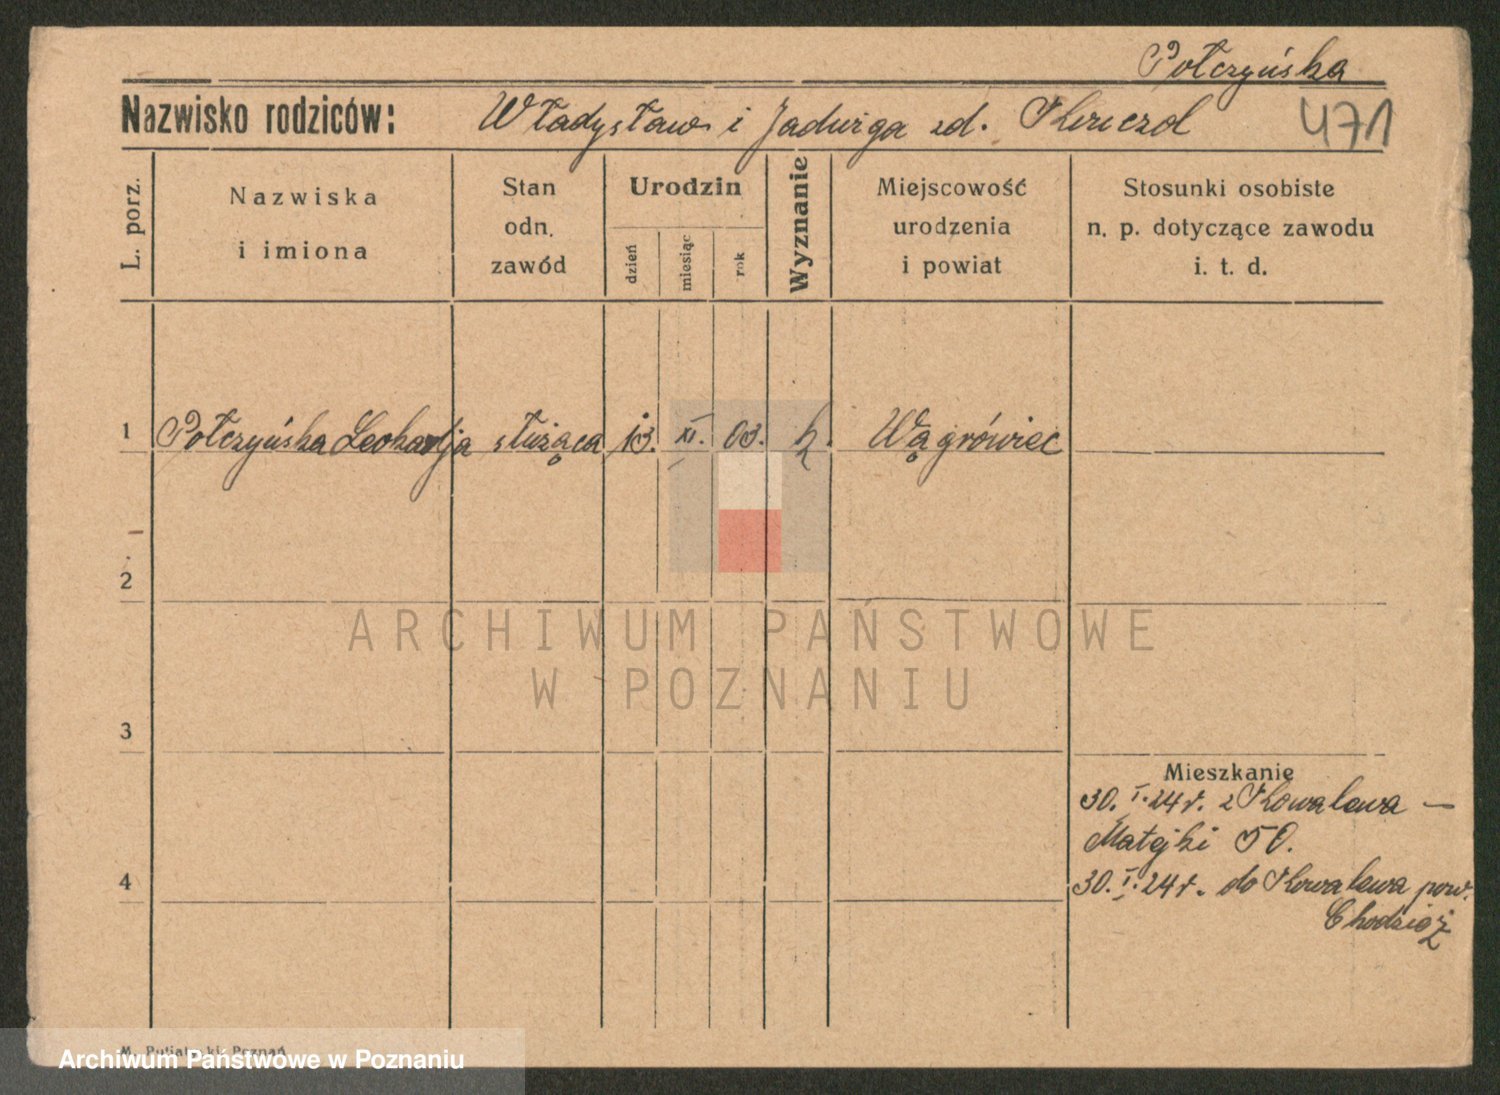 Połczyńska
Nazwisko rodziców: Władysław i Jadwiga zd. 471
L. porz.
Nazwiska
i imiona
Stan
odn.
zawód
Urodzin
dzień
miesiąc
rok
Wyznanie
Miejscowość
urodzenia
i powiat
Stosunki osobiste
n. p. dotyczące zawodu
i. t. d.
1 Połczyńska Leokadja służąca 13. XI. 03. k. Wągrówiec
2
3
4
Mieszkanie
30. I. 24 r. z Kowalewa —
Matejki 50.
30. I. 24 r. do Kowalewa pow.
Chodzież
ARCHIWUM PAŃSTWOWE
W POZNANIU
Poznań
Archiwum Państwowe w Poznaniu